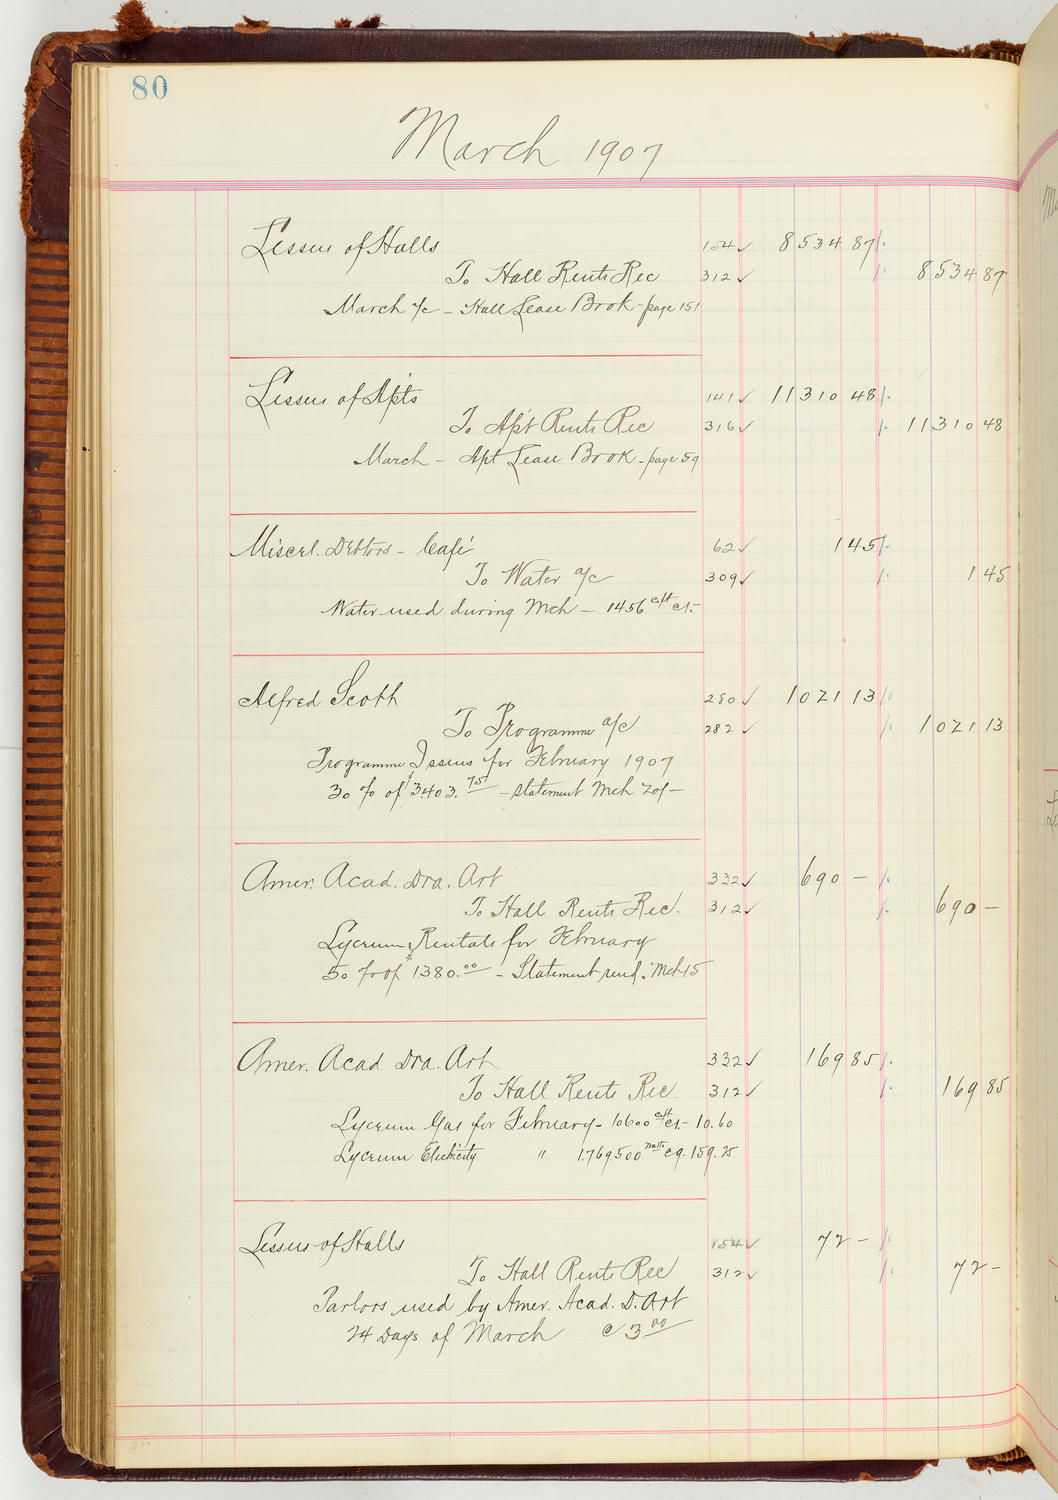 80
March 1907
Lessees of Halls 154 ✓ 8534 87
To Hall Rents Rec 312 ✓ 8534 87
March a/c – Hall Lease Book – page 151
Lessees of Apts 141 ✓ 11310 48
To Apt Rents Rec 316 ✓ 11310 48
March – Apt Lease Book – page 59
Miscel. Debtors – Café 62 ✓ 1 45
To Water a/c 309 ✓ 1 45
Water used during Mch – 1456 c/ft
Alfred Scott 280 ✓ 1021 13
To Programme a/c 282 ✓ 1021 13
Programme Issues for February 1907
30 % of $3403.75 – statement Mch
Amer. Acad. Dra. Art 332 ✓ 690 –
To Hall Rents Rec. 312 ✓ 690 –
Lyceum Rentals for February
50 % of $1380.00 – Statement rend. Mch 15
Amer. Acad Dra. Art 332 ✓ 169 85
To Hall Rents Rec. 312 ✓ 169 85
Lyceum Gas for February – 10600 c/ft – 10.60
Lyceum Electricity " 1.769.500 watts 159.25
Lessees of Halls 154 ✓ 72 –
To Hall Rents Rec 312 ✓ 72 –
Parlors used by Amer. Acad. D. Art
24 Days of March @ 3.00